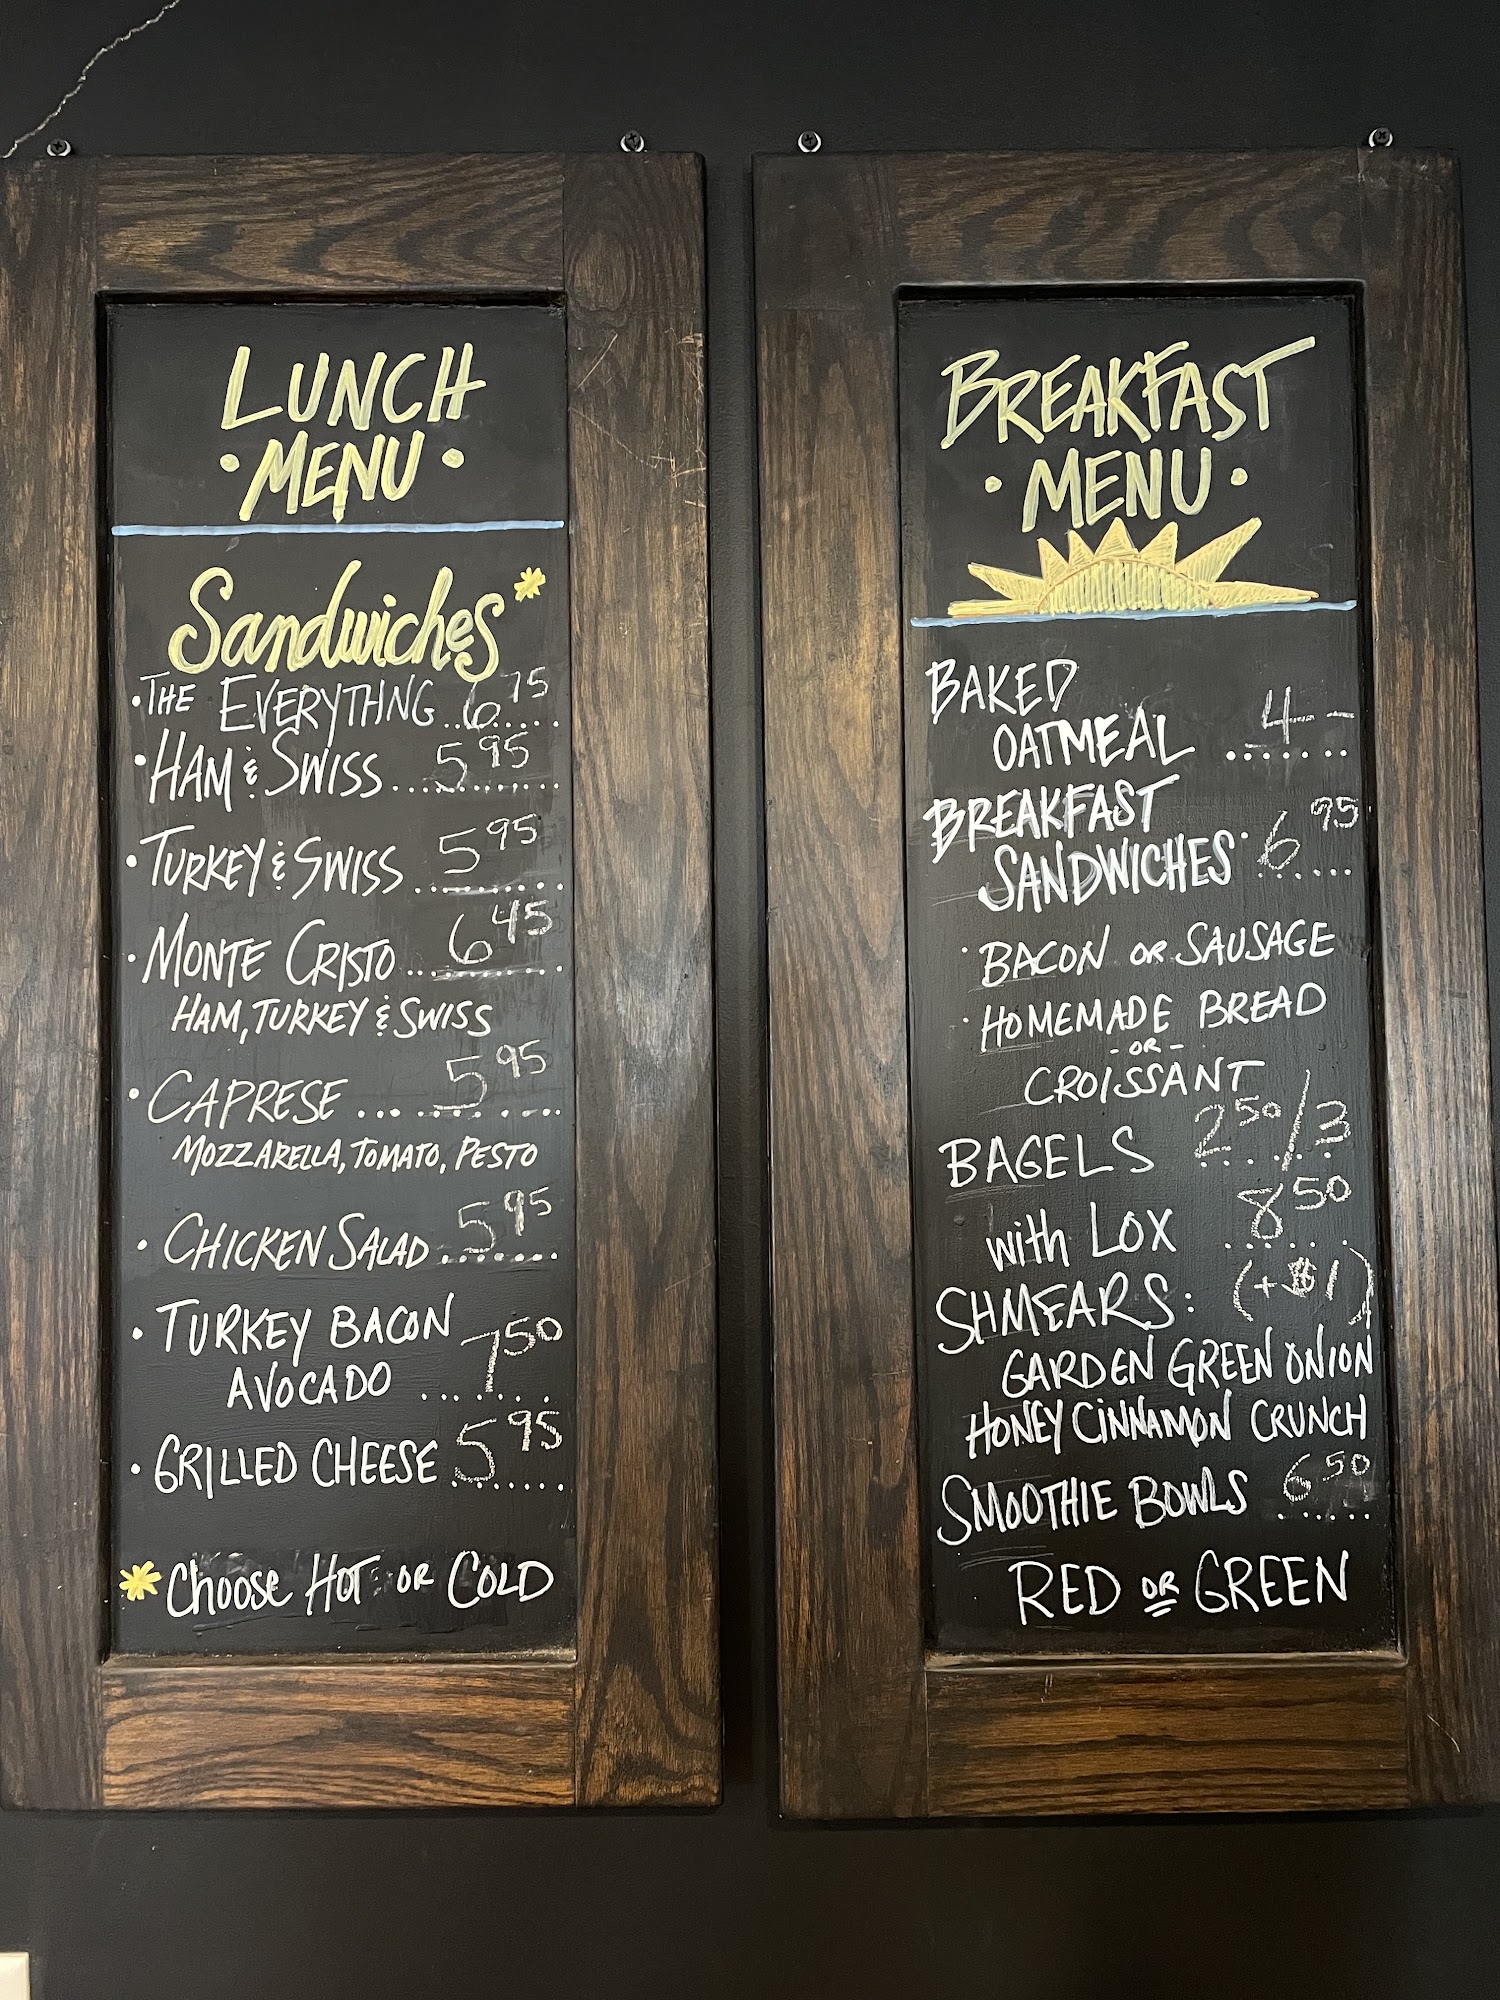 LUNCH
• MENU •
Sandwiches*
• THE EVERYTHNG ..6.75....
• HAM & SWISS ...5.95.......
• TURKEY & SWISS ..5.95.......
• MONTE CRISTO ..6.45.......
HAM, TURKEY & SWISS
• CAPRESE ... 5.95 ....
MOZZARELLA, TOMATO, PESTO
• CHICKEN SALAD .5.95.....
• TURKEY BACON
AVOCADO ...7.50...
• GRILLED CHEESE 5.95
* Choose HOT OR COLD
BREAKFAST
• MENU •
BAKED
OATMEAL ..4--..
BREAKFAST
SANDWICHES 6.95
• BACON OR SAUSAGE
• HOMEMADE BREAD
- OR -
CROISSANT
BAGELS 2.50/3
with LOX 8.50
SHMEARS: (+$1)
GARDEN GREEN ONION
HONEY CINNAMON CRUNCH
SMOOTHIE BOWLS 6.50
RED OR GREEN